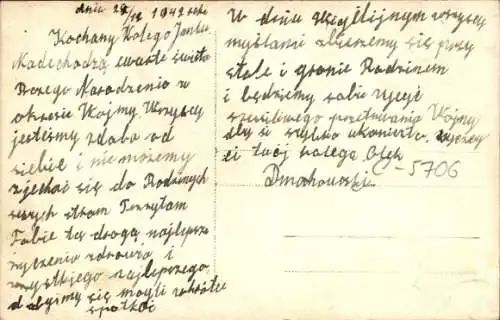 dnia 28/12 1942 roku
Kochany Kolego Janku
Nadechodzą czwarte święta
Bożego Narodzenia w
okresie Wojny. Wszyscy
jesteśmy zdala od
siebie i nie możemy
zjechać się do Rodzinych
swych stron
Tobie tą drogą najlepsze
życzenia zdrowia i
wszystkiego najlepszego
abyśmy się mogli
spotkać
W dniu Wigilijnym wszyscy
myślami zbierzemy się przy
stole i gronie Rodzinem
i będziemy sobie życyć
szczęśliwego przetrwania Wojny
aby się szybko
ci twój kolega Olek
Dmochowski
-5706